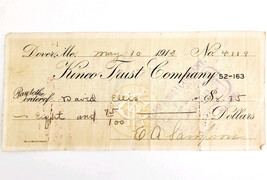 Dover, Me. May 10 1912 No. 4119
Kinco Trust Company 52-163
Pay to the
order of David Ellis $8.75
Eight and 75/100 Dollars